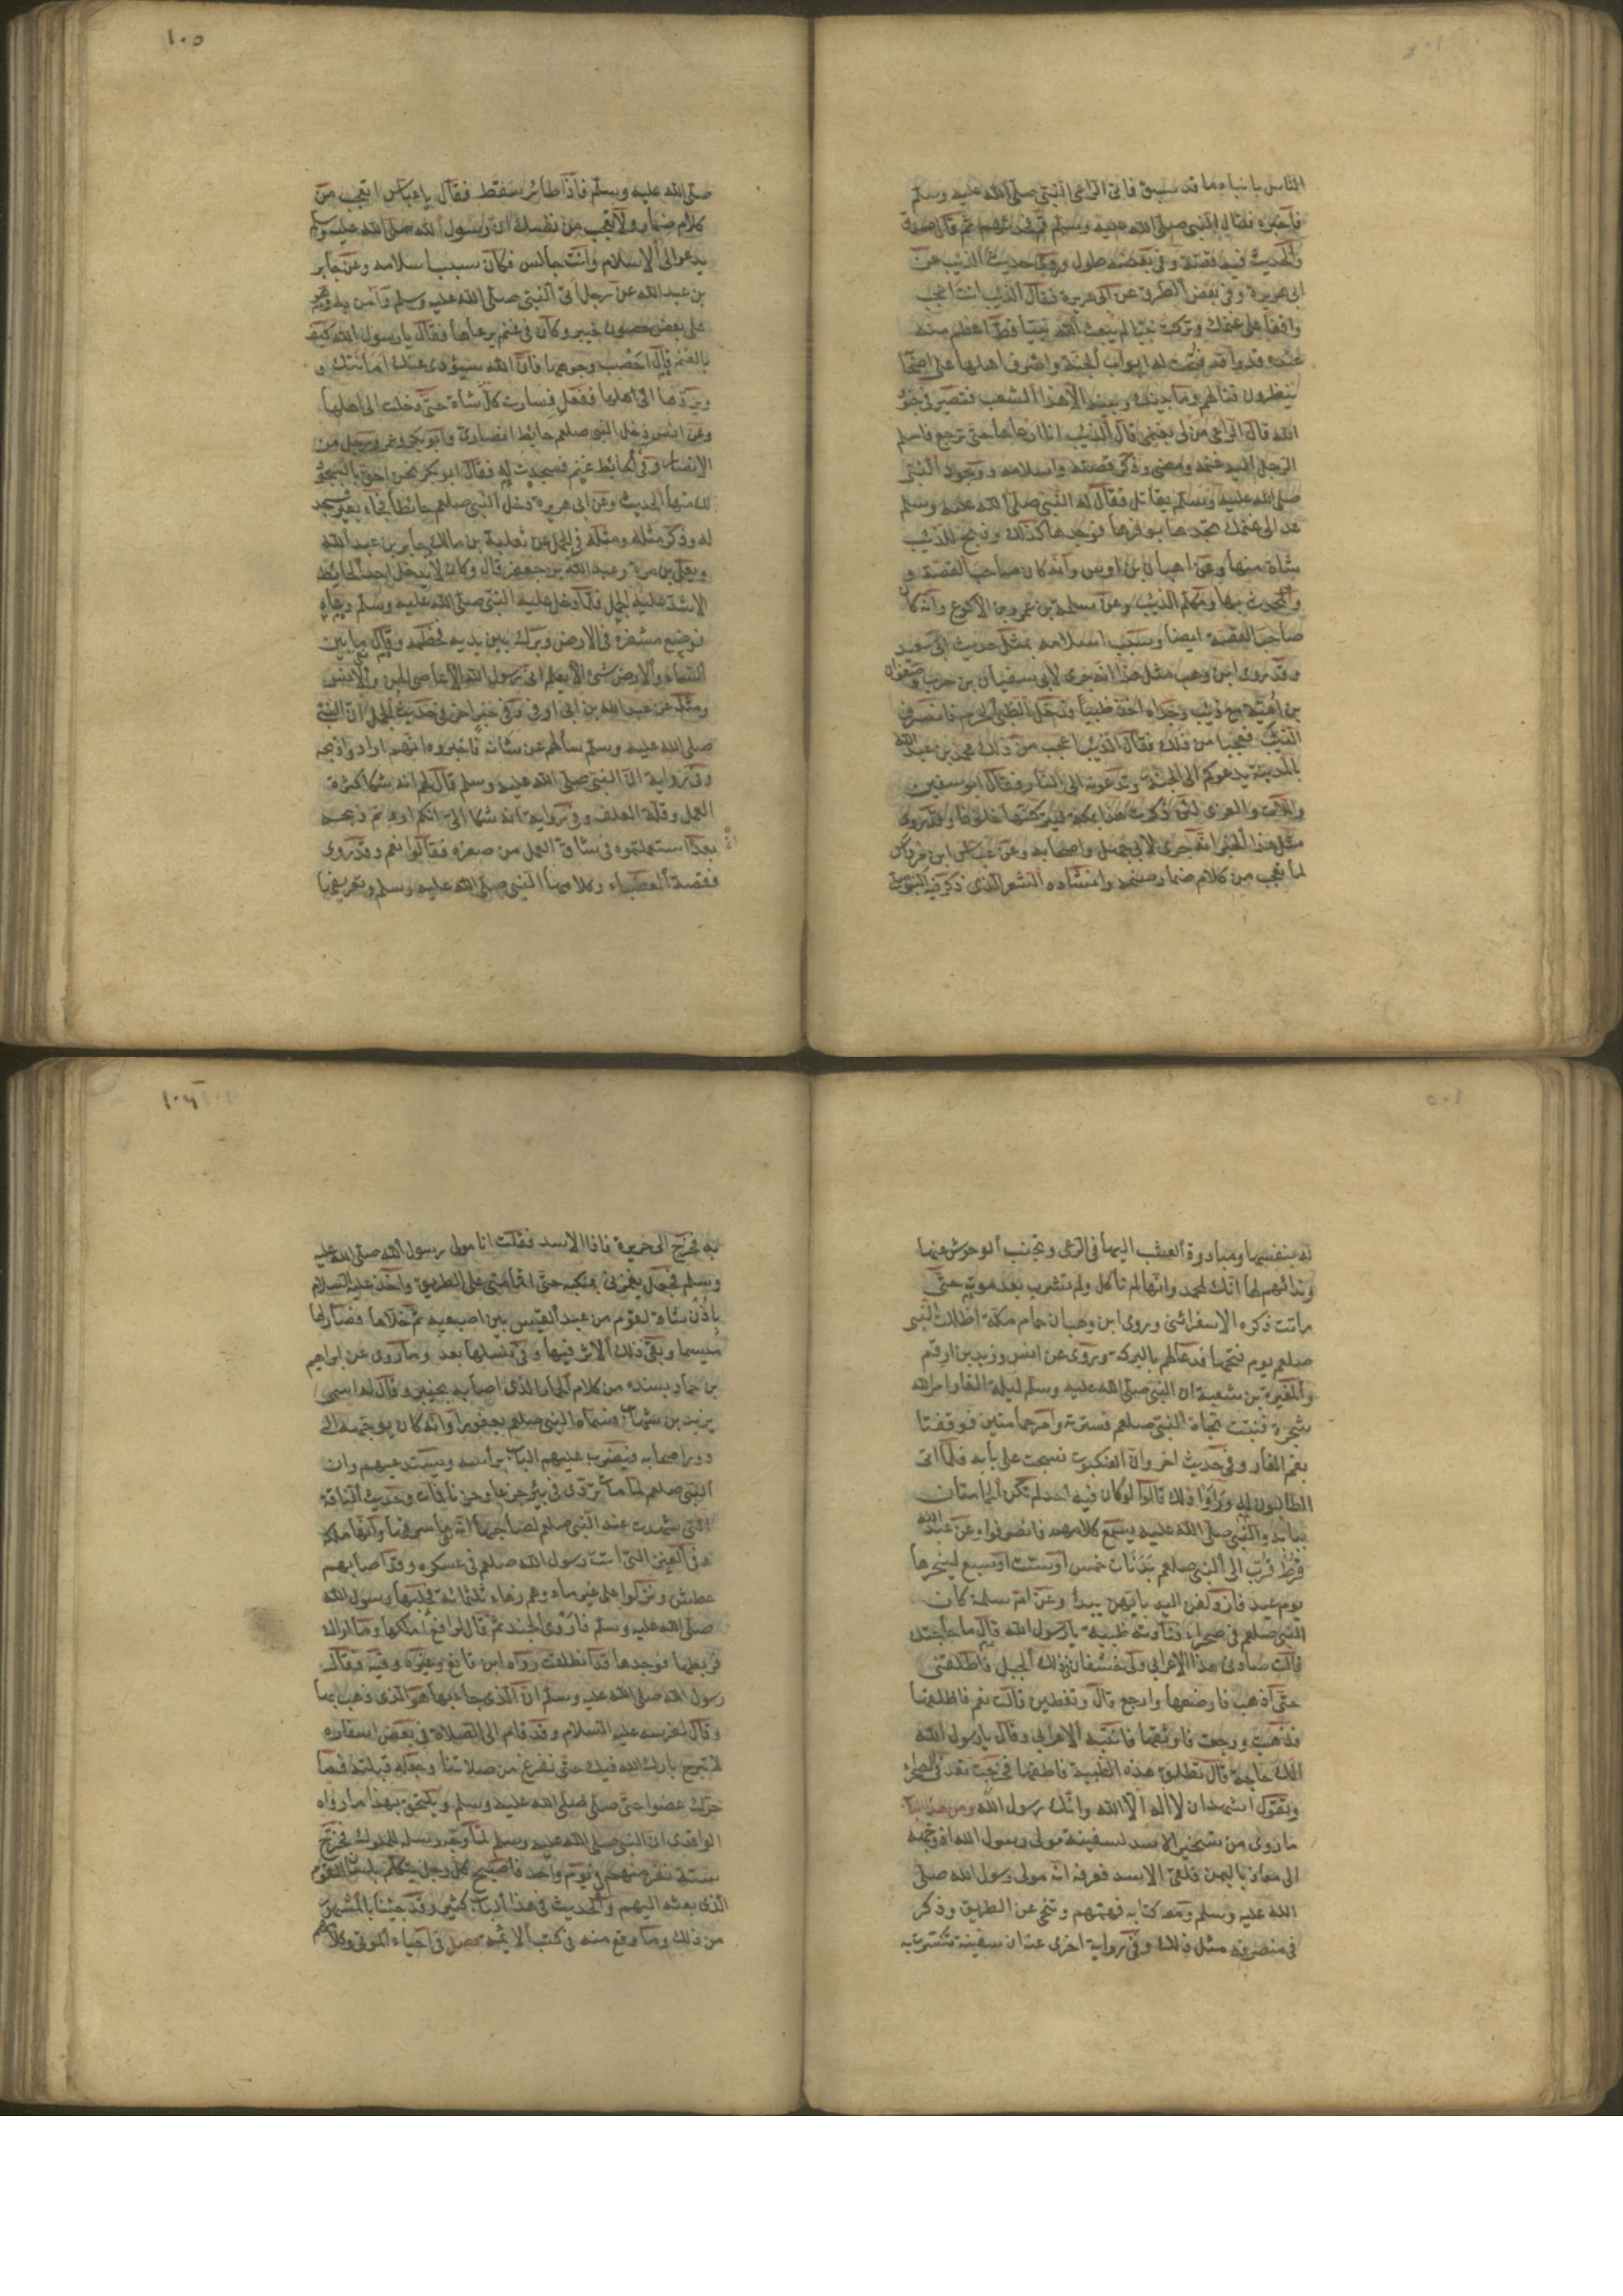 الناس بانباء ما قد سبق فاتى الراعى النبى صلى الله عليه وسلم
فاخبره فقال النبى صلى الله عليه وسلم قم فحدثهم ثم قال صدق
والحديث فيه قصة وفى بعضه طول وروى حديث الذيب عن
ابى هريرة وفى بعض الطرق عن ابى هريرة فقال الذيب انت اعجب
واقفا على غنمك وتركت نبيا لم يبعث الله نبيا قط اعظم منه
عنده قدرا قد فتحت له ابواب الجنة واشرف اهلها على اصحابه
ينظرون قتالهم وما بينك وبينه الا هذا الشعب فتصير فى جنود
الله قال الراعى من لى بغنمى قال الذيب انا ارعاها حتى ترجع فاسلم
الرجل اليه غنمه ومضى وذكر قصته واسلامه ووجود النبى
صلى الله عليه وسلم يقاتل فقال له النبى صلى الله عليه وسلم
عد الى غنمك تجدها بوفرها فوجدها كذلك وذبح للذيب
شاة منها وعن اهبان بن اوس وانه كان صاحب القصة و
والمحدث بها ومكلم الذيب وعن سلمة بن عمرو بن الاكوع وانه كان
صاحب القصة ايضا وسبب اسلامه بمثل حديث ابى سعيد
وقد روى ابن وهب مثل هذا انه جرى لابى سفيان بن حرب وصفوان
بن امية مع ذيب وجداه اخذ ظبيا فدخل الظبى الحرم فانصرف
الذيب فعجبا من ذلك فقال الذيب اعجب من ذلك محمد بن عبد الله
بالمدينة يدعوكم الى الجنة وتدعونه الى النار فقال ابو سفين
واللات والعزى لئن ذكرت هذا بمكة ليتركنها خلوفا وقد روى
مثل هذا الخبر انه جرى لابى جهل واصحابه وعن عباس ابن مرداس
لما تعجب من كلام ضمار صنمه وانشاده الشعر الذى ذكر فيه النبى
١٠٥
صلى الله عليه وسلم فاذا طائر سقط فقال يا عباس اتعجب من
كلام ضمار ولا تعجب من نفسك ان رسول الله صلى الله عليه وسلم
يدعو الى الاسلام وانت جالس فكان سبب اسلامه وعن جابر
بن عبد الله عن رجل اتى النبى صلى الله عليه وسلم وآمن به وهو
على بعض حصون خيبر وكان فى غنم يرعاها فقال يا رسول الله كيف
بالغنم قال احصب وجوهها فان الله سيؤدى عنك امانتك و
ويردها الى اهلها ففعل فسارت كل شاة حتى دخلت الى اهلها
وعن انس دخل النبى صلعم حايط انصارى وابو بكر وعمر ورجل من
الانصار وفى الحائط غنم فسجدت له فقال ابو بكر نحن احق بالسجود
لك منها الحديث وعن ابى هريرة دخل النبى صلعم حائطا فجاء بعير فسجد
له وذكر مثله ومثله فى الجمل عن ثعلبة بن مالك وجابر بن عبد الله
ويعلى بن مرة وعبد الله بن جعفر قال وكان لا يدخل احد الحايط
الا شد عليه الجمل فلما دخل عليه النبى صلى الله عليه وسلم دعاه
فوضع مشفره فى الارض وبرك بين يديه فخطمه وقال ما بين
السماء والارض شئ الا يعلم انى رسول الله الا عاصى الجن والانس
ومثله عن عبد الله بن ابى اوفى وفى خبر اخر فى حديث الجمل ان النبى
صلى الله عليه وسلم سألهم عن شانه فاخبروه انهم ارادوا ذبحه
وفى رواية ان النبى صلى الله عليه وسلم قال لهم انه شكا كثرة
العمل وقلة العلف وفى رواية انه شكا الى انكم اردتم ذبحه
بعد ان استعملتموه فى شاق العمل من صغره فقالوا نعم وقد روى
فقصة العضباء وكلامها النبى صلى الله عليه وسلم وتعريفها
له بنفسها ومبادرة العشب اليها فى الرعى وتجنب الوحوش عنها
وندائهم لها انك لمحمد وانها لم تاكل ولم تشرب بعد موته حتى
ماتت ذكره الاسفرائنى وروى ابن وهب ان حمام مكة اظلت النبى
صلعم يوم فتحها فدعا لهم بالبركة وروى عن انس وزيد بن ارقم
والمغيرة بن شعبة ان النبى صلى الله عليه وسلم ليلة الغار امر الله
شجرة فنبتت تجاه النبى صلعم فسترته وامر حمامتين فوقفتا
بفم الغار وفى حديث اخر وان العنكبوت نسجت على بابه فلما اتى
الطالبون له وراوا ذلك قالوا لو كان فيه احد لم تكن الحمامتان
ببابه والنبى صلى الله عليه يسمع كلامهم فانصرفوا وعن عبد الله
قرط قرب الى النبى صلعم بدنات خمس او ست او سبع لينحرها
يوم عيد فازدلفن اليه بايتهن يبدأ وعن ام سلمة كان
النبى صلعم فى صحراء فنادته ظبية يا رسول الله قال ما حاجتك
قالت صادنى هذا الاعرابى ولى خشفان فى ذلك الجبل فاطلقنى
حتى اذهب فارضعهما وارجع قال وتفعلين قالت نعم فاطلقها
فذهبت ورجعت فاوثقها فانتبه الاعرابى وقال يا رسول الله
الك حاجة قال تطلق هذه الظبية فاطلقها فخرجت تعدو فى الصحراء
وتقول اشهد ان لا اله الا الله وانك رسول الله ومن هذا الباب
ما روى من تسخير الاسد لسفينة مولى رسول الله اذ وجهه
الى معاذ باليمن فلقى الاسد فعرفه انه مولى رسول الله صلى
الله عليه وسلم ومعه كتابه فهمهم وتنحى عن الطريق وذكر
فى منصرفه مثل ذلك وفى رواية اخرى عنه ان سفينة تكسرت به
١٠٦
به فخرج الى جزيرة فاذا الاسد فقلت انا مولى رسول الله صلى الله عليه
وسلم فجعل يغمزنى بمنكبه حتى اقامنى على الطريق واخذ عليه السلام
باذن شاة لقوم من عبد القيس بين اصبعيه ثم خلاها فصار لها
ميسما وبقى ذلك الاثر فيها وفى نسلها بعد وما روى عن ابراهيم
بن حماد بسنده من كلام الحمار الذى اصابه بخيبر وقال له اسمى
يزيد بن شهاب فسماه النبى صلعم يعفورا وانه كان يوجهه الى
دور اصحابه فيضرب عليهم الباب براسه ويستدعيهم وان
النبى صلعم لما مات تردى فى بئر جزعا وحزنا فمات وحديث الناقة
التى شهدت عند النبى صلعم لصاحبها انه ما سرقها وانها ملكه
وفى العنز التى اتت رسول الله صلعم فى عسكره وقد اصابهم
عطش ونزلوا على غير ماء وهم زهاء ثلثمائة فحلبها رسول الله
صلى الله عليه وسلم فاروى الجند ثم قال لرافع املكها وما اراك
فربطها فوجدها قد انطلقت رواه ابن قانع وغيره وفيه فقال
رسول الله صلى الله عليه وسلم ان الذى جاء بها هو الذى ذهب بها
وقال لفرسه عليه السلام وقد قام الى الصلاة فى بعض اسفاره
لا تبرح بارك الله فيك حتى نفرغ من صلاتنا وجعله قبلته فما
حرك عضوا حتى صلى صلى الله عليه وسلم ويلتحق بهذا ما رواه
الواقدى ان النبى صلى الله عليه وسلم لما وجه رسله للملوك فخرج
ستة نفر منهم فى يوم واحد فاصبح كل رجل يتكلم بلسان القوم
الذى بعثه اليهم والحديث فى هذا الباب كثير وقد جئنا بالمشهور
من ذلك وما وقع منه فى كتب الائمة فصل فى احياء الموتى وكلامهم